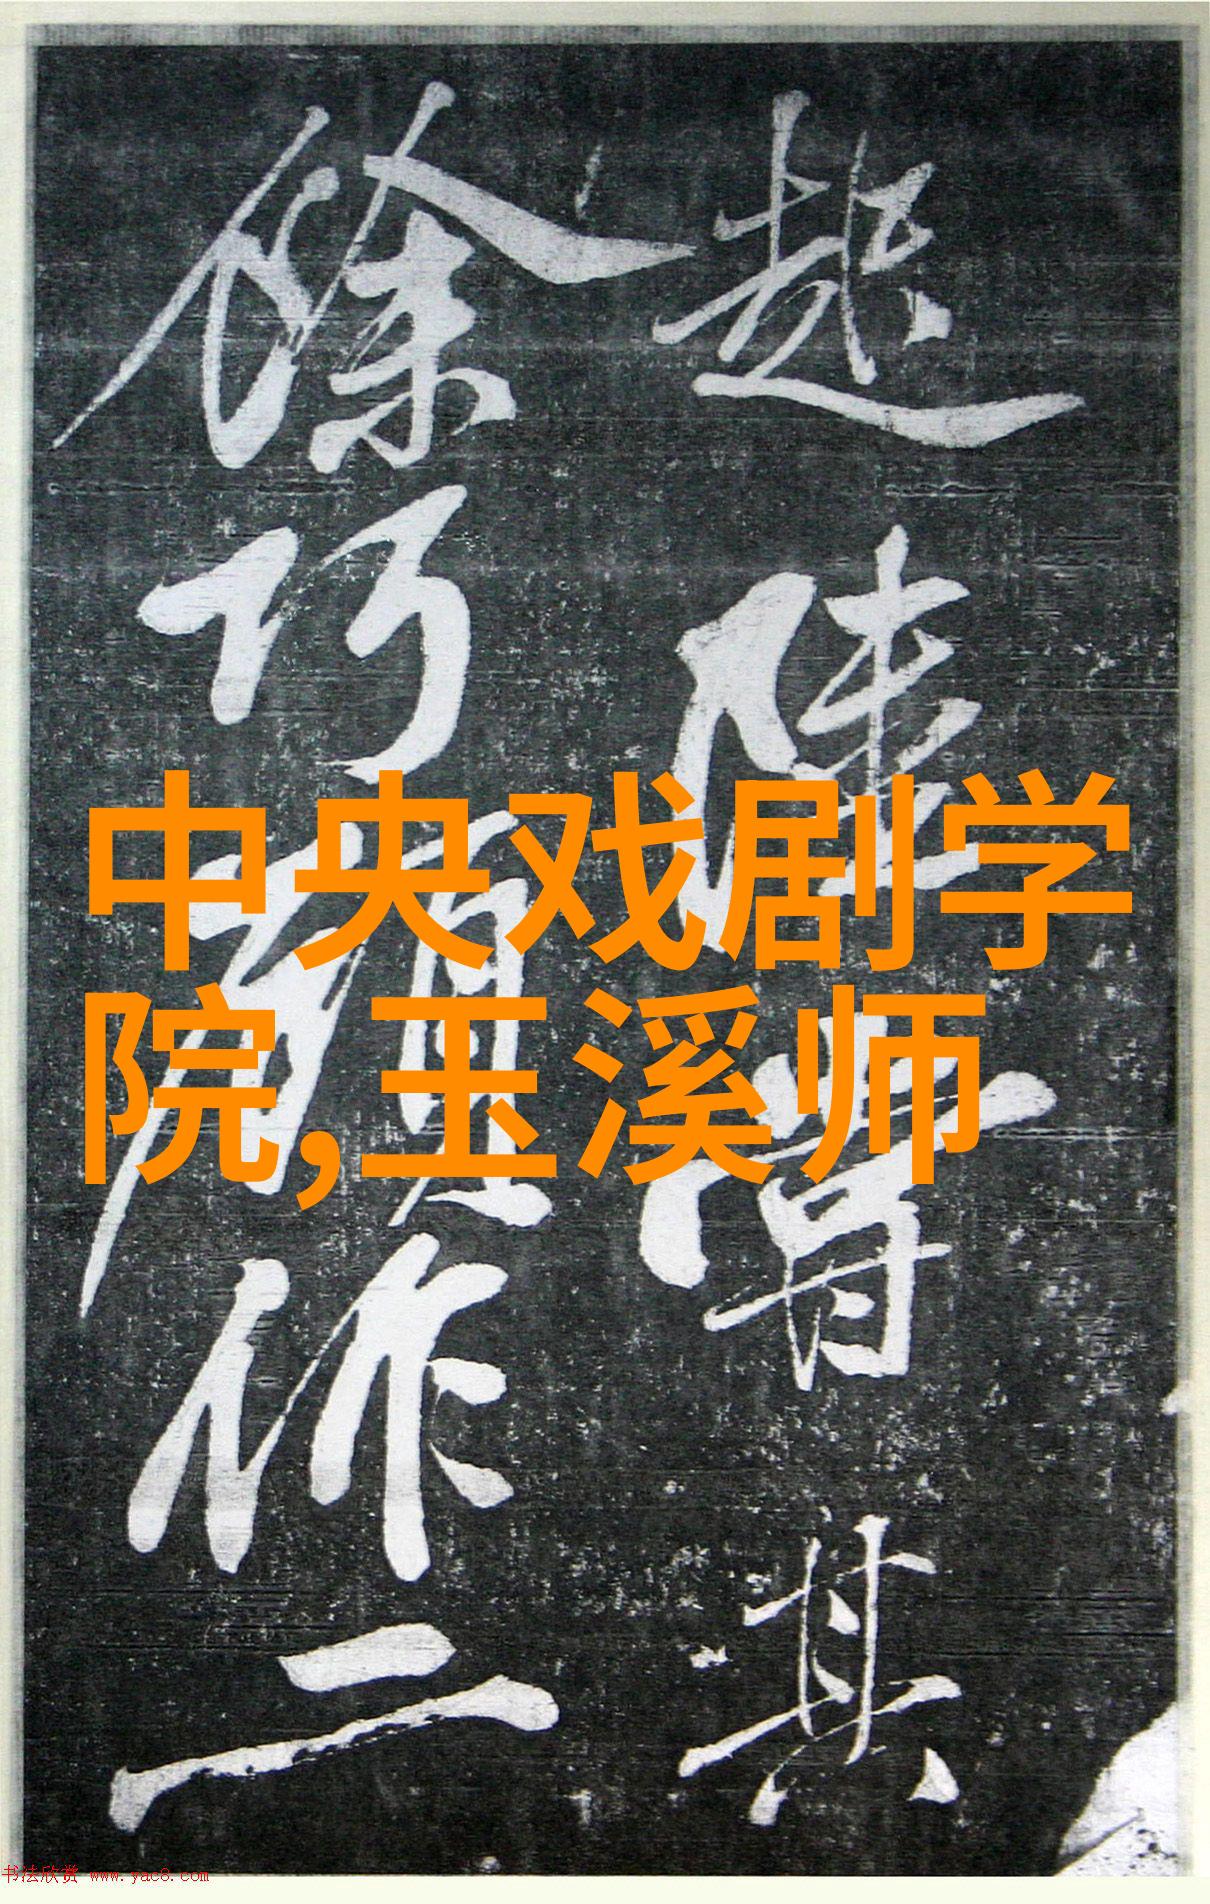 趙隨當其
徐巧顧作二
中央戏剧学
院,玉溪师
书法欣赏 www.yac8.com